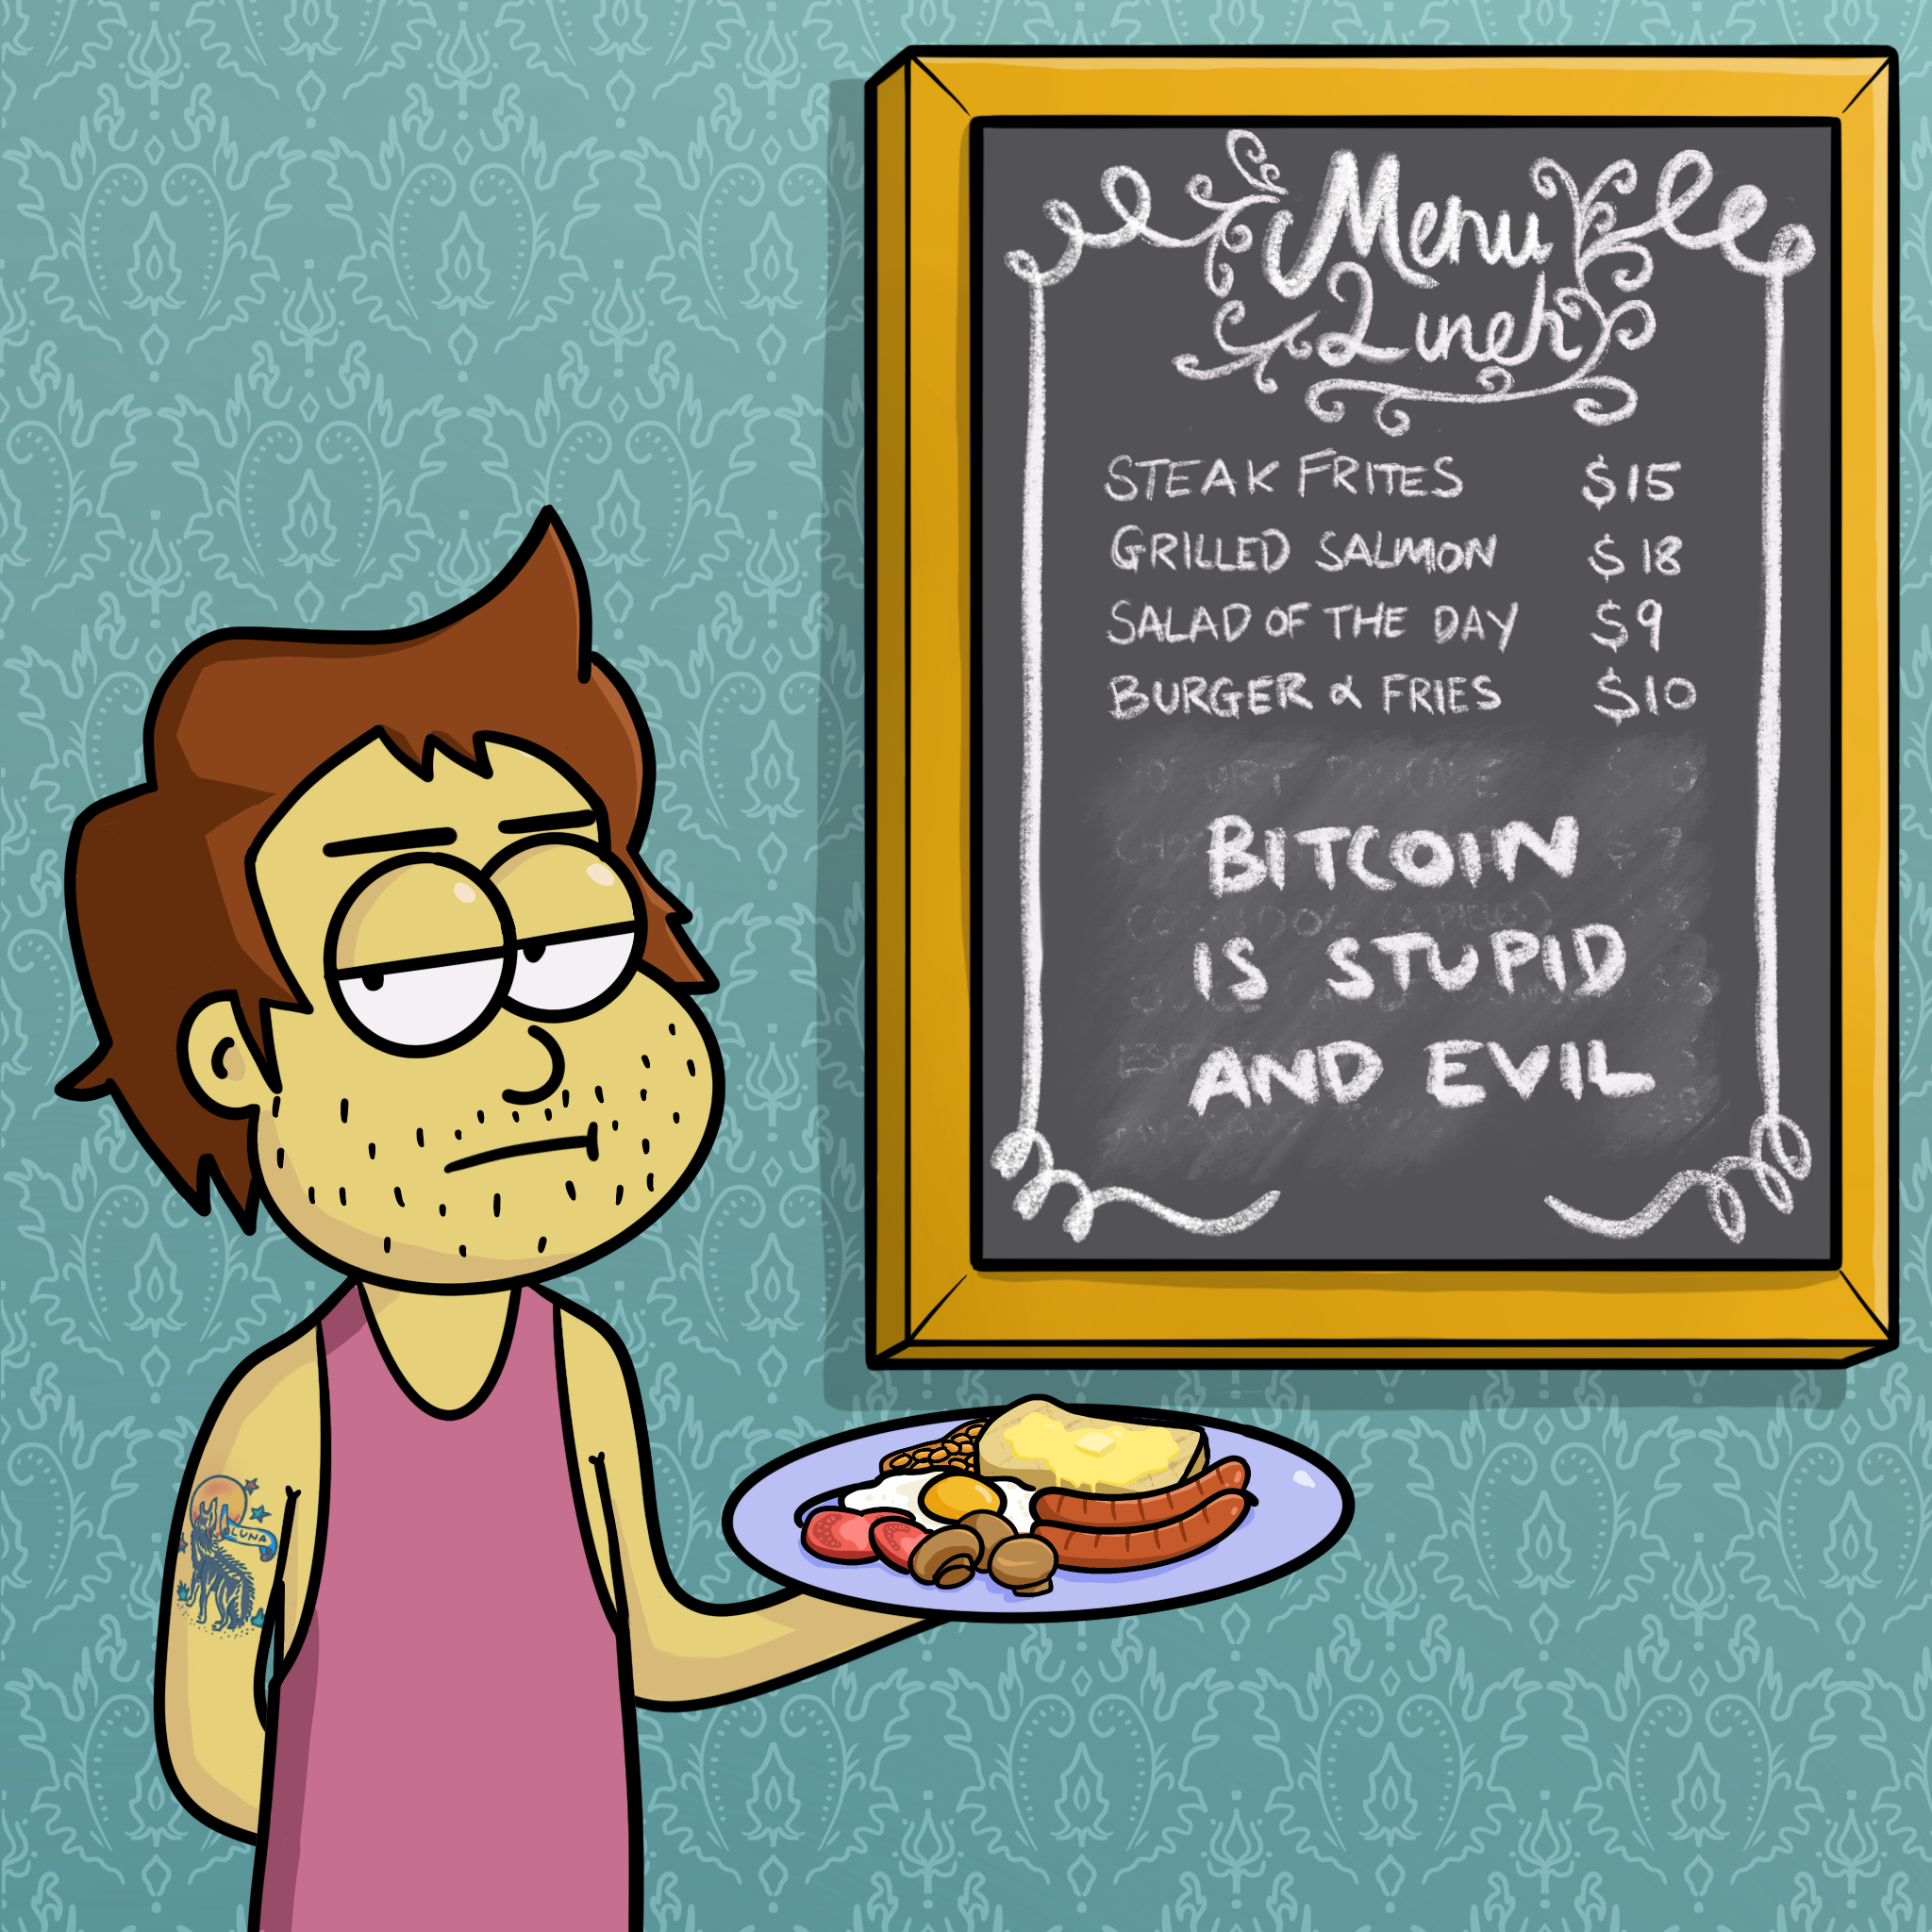 Menu
Lunch
STEAK FRITES $15
GRILLED SALMON $18
SALAD OF THE DAY $9
BURGER & FRIES $10
BITCOIN
IS STUPID
AND EVIL
LUNA